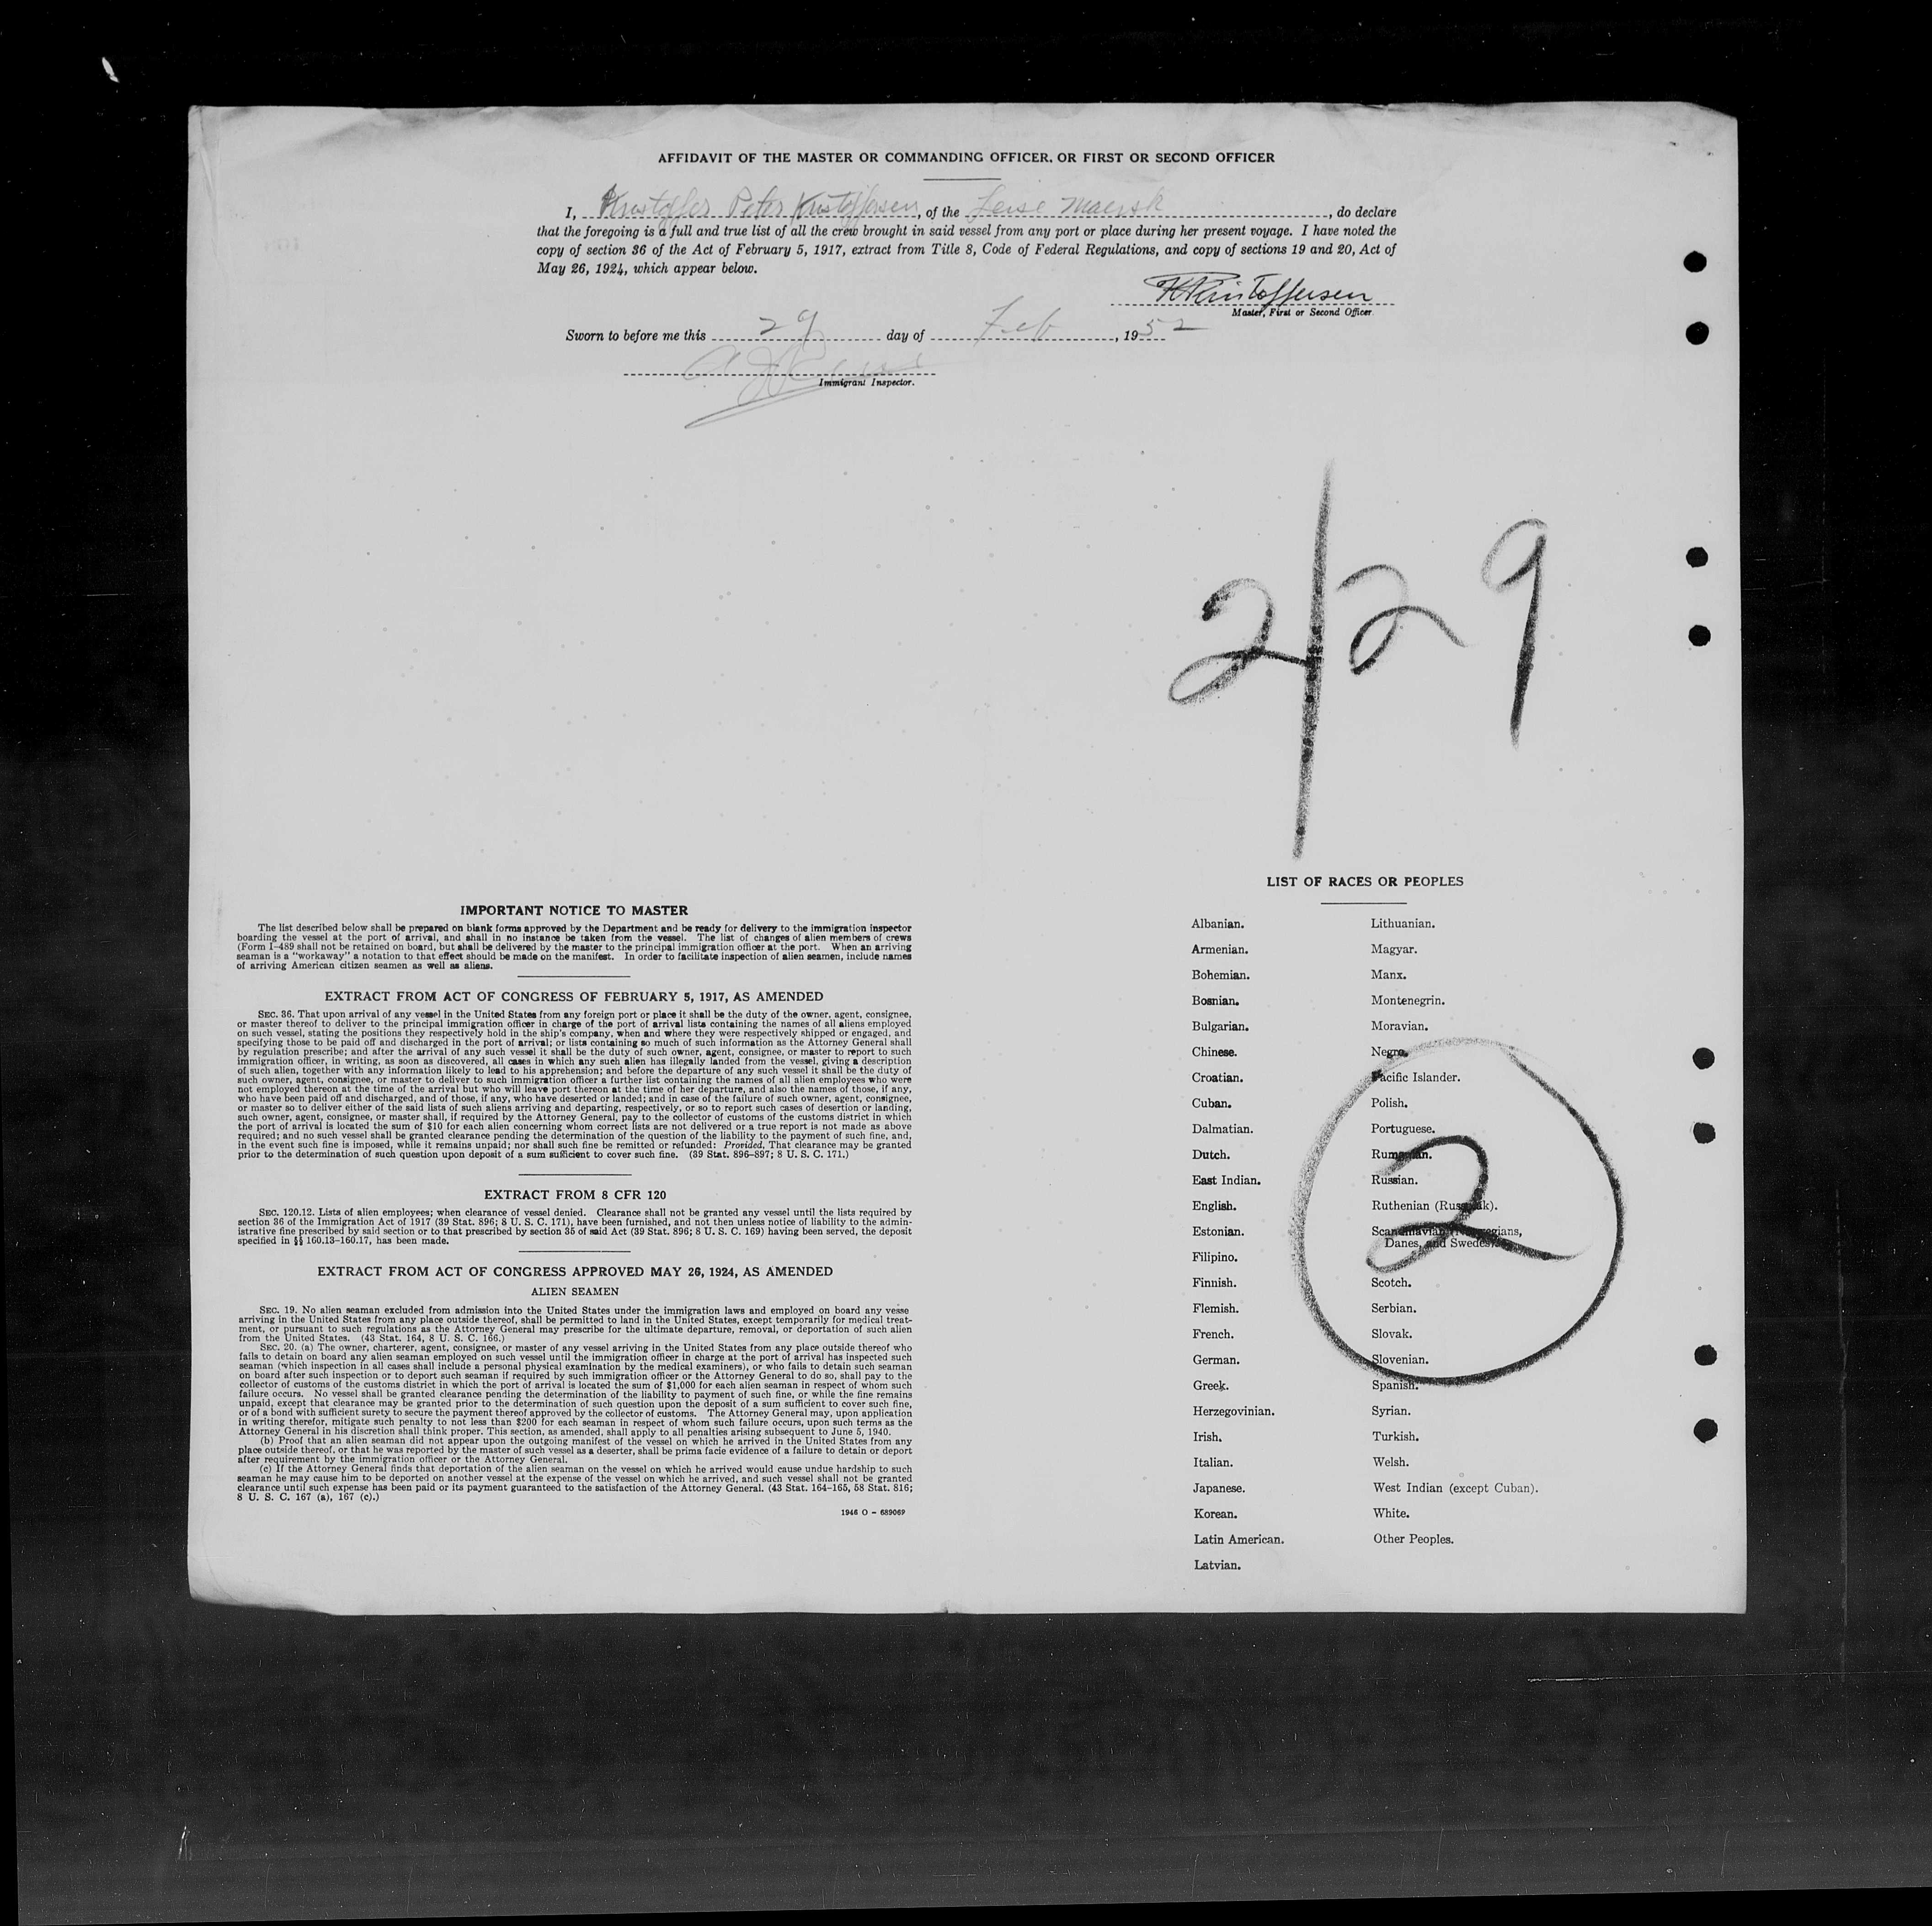 AFFIDAVIT OF THE MASTER OR COMMANDING OFFICER, OR FIRST OR SECOND OFFICER
I, Kristoffer Peter Kristoffersen, of the Leise Maersk, do declare
that the foregoing is a full and true list of all the crew brought in said vessel from any port or place during her present voyage. I have noted the
copy of section 36 of the Act of February 5, 1917, extract from Title 8, Code of Federal Regulations, and copy of sections 19 and 20, Act of
May 26, 1924, which appear below.
Kristoffersen
Master, First or Second Officer.
Sworn to before me this 29 day of Feb, 1952
Immigrant Inspector.
2/29
IMPORTANT NOTICE TO MASTER
The list described below shall be prepared on blank forms approved by the Department and be ready for delivery to the immigration inspector
boarding the vessel at the port of arrival, and shall in no instance be taken from the vessel. The list of changes of alien members of crews
(Form I-489 shall not be retained on board, but shall be delivered by the master to the principal immigration officer at the port. When an arriving
seaman is a "workaway" a notation to that effect should be made on the manifest. In order to facilitate inspection of alien seamen, include names
of arriving American citizen seamen as well as aliens.
EXTRACT FROM ACT OF CONGRESS OF FEBRUARY 5, 1917, AS AMENDED
SEC. 36. That upon arrival of any vessel in the United States from any foreign port or place it shall be the duty of the owner, agent, consignee,
or master thereof to deliver to the principal immigration officer in charge of the port of arrival lists containing the names of all aliens employed
on such vessel, stating the positions they respectively hold in the ship's company, when and where they were respectively shipped or engaged, and
specifying those to be paid off and discharged in the port of arrival; or lists containing so much of such information as the Attorney General shall
by regulation prescribe; and after the arrival of any such vessel it shall be the duty of such owner, agent, consignee, or master to report to such
immigration officer, in writing, as soon as discovered, all cases in which any such alien has illegally landed from the vessel, giving a description
of such alien, together with any information likely to lead to his apprehension; and before the departure of any such vessel it shall be the duty of
such owner, agent, consignee, or master to deliver to such immigration officer a further list containing the names of all alien employees who were
not employed thereon at the time of the arrival but who will leave port thereon at the time of her departure, and also the names of those, if any,
who have been paid off and discharged, and of those, if any, who have deserted or landed; and in case of the failure of such owner, agent, consignee,
or master so to deliver either of the said lists of such aliens arriving and departing, respectively, or so to report such cases of desertion or landing,
such owner, agent, consignee, or master shall, if required by the Attorney General, pay to the collector of customs of the customs district in which
the port of arrival is located the sum of $10 for each alien concerning whom correct lists are not delivered or a true report is not made as above
required; and no such vessel shall be granted clearance pending the determination of the question of the liability to the payment of such fine, and,
in the event such fine is imposed, while it remains unpaid; nor shall such fine be remitted or refunded: Provided, That clearance may be granted
prior to the determination of such question upon deposit of a sum sufficient to cover such fine. (39 Stat. 896-897; 8 U. S. C. 171.)
EXTRACT FROM 8 CFR 120
SEC. 120.12. Lists of alien employees; when clearance of vessel denied. Clearance shall not be granted any vessel until the lists required by
section 36 of the Immigration Act of 1917 (39 Stat. 896; 8 U. S. C. 171), have been furnished, and not then unless notice of liability to the admin-
istrative fine prescribed by said section or to that prescribed by section 35 of said Act (39 Stat. 896; 8 U. S. C. 169) having been served, the deposit
specified in §§ 160.13-160.17, has been made.
EXTRACT FROM ACT OF CONGRESS APPROVED MAY 26, 1924, AS AMENDED
ALIEN SEAMEN
SEC. 19. No alien seaman excluded from admission into the United States under the immigration laws and employed on board any vesse
arriving in the United States from any place outside thereof, shall be permitted to land in the United States, except temporarily for medical treat-
ment, or pursuant to such regulations as the Attorney General may prescribe for the ultimate departure, removal, or deportation of such alien
from the United States. (43 Stat. 164, 8 U. S. C. 166.)
SEC. 20. (a) The owner, charterer, agent, consignee, or master of any vessel arriving in the United States from any place outside thereof who
fails to detain on board any alien seaman employed on such vessel until the immigration officer in charge at the port of arrival has inspected such
seaman (which inspection in all cases shall include a personal physical examination by the medical examiners), or who fails to detain such seaman
on board after such inspection or to deport such seaman if required by such immigration officer or the Attorney General to do so, shall pay to the
collector of customs of the customs district in which the port of arrival is located the sum of $1,000 for each alien seaman in respect of whom such
failure occurs. No vessel shall be granted clearance pending the determination of the liability to payment of such fine, or while the fine remains
unpaid, except that clearance may be granted prior to the determination of such question upon the deposit of a sum sufficient to cover such fine,
or of a bond with sufficient surety to secure the payment thereof approved by the collector of customs. The Attorney General may, upon application
in writing therefor, mitigate such penalty to not less than $200 for each seaman in respect of whom such failure occurs, upon such terms as the
Attorney General in his discretion shall think proper. This section, as amended, shall apply to all penalties arising subsequent to June 5, 1940.
(b) Proof that an alien seaman did not appear upon the outgoing manifest of the vessel on which he arrived in the United States from any
place outside thereof, or that he was reported by the master of such vessel as a deserter, shall be prima facie evidence of a failure to detain or deport
after requirement by the immigration officer or the Attorney General.
(c) If the Attorney General finds that deportation of the alien seaman on the vessel on which he arrived would cause undue hardship to such
seaman he may cause him to be deported on another vessel at the expense of the vessel on which he arrived, and such vessel shall not be granted
clearance until such expense has been paid or its payment guaranteed to the satisfaction of the Attorney General. (43 Stat. 164-165, 58 Stat. 816;
8 U. S. C. 167 (a), 167 (c).)
1946 O - 689069
LIST OF RACES OR PEOPLES
Albanian.
Armenian.
Bohemian.
Bosnian.
Bulgarian.
Chinese.
Croatian.
Cuban.
Dalmatian.
Dutch.
East Indian.
English.
Estonian.
Filipino.
Finnish.
Flemish.
French.
German.
Greek.
Herzegovinian.
Irish.
Italian.
Japanese.
Korean.
Latin American.
Latvian.
Lithuanian.
Magyar.
Manx.
Montenegrin.
Moravian.
Negro.
Pacific Islander.
Polish.
Portuguese.
Rumanian.
Russian.
Ruthenian (Russniak).
Scandinavian (Norwegians,
Danes, and Swedes).
Scotch.
Serbian.
Slovak.
Slovenian.
Spanish.
Syrian.
Turkish.
Welsh.
West Indian (except Cuban).
White.
Other Peoples.
2